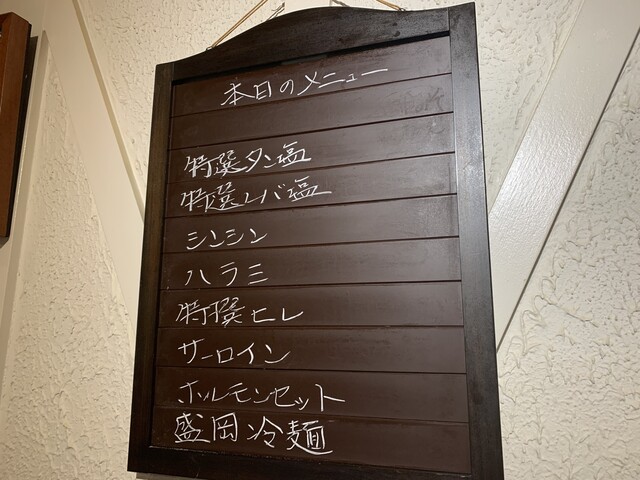 本日のメニュー
特選タン塩
特選レバ塩
シンシン
ハラミ
特撰ヒレ
サーロイン
ホルモンセット
盛岡冷麺